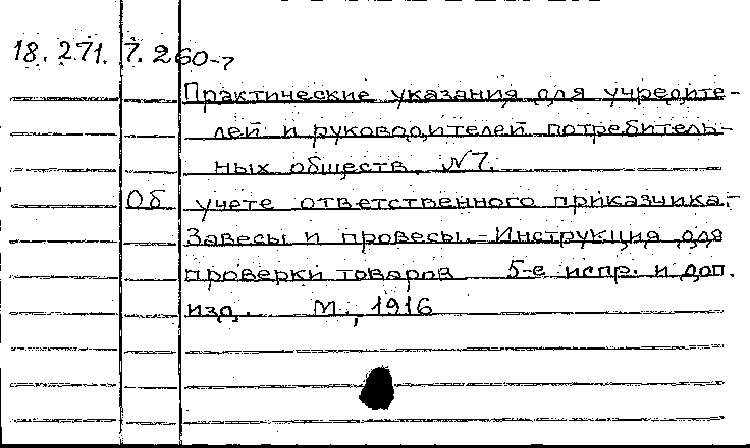 18.271.7.260-7
Практические указания для учредите-
лей и руководителей потребитель-
ных обществ. №7.
Об учете ответственного приказчика.-
Завесы и провесы.-Инструкция для
проверки товаров 5-е испр. и доп.
изд. М., 1916